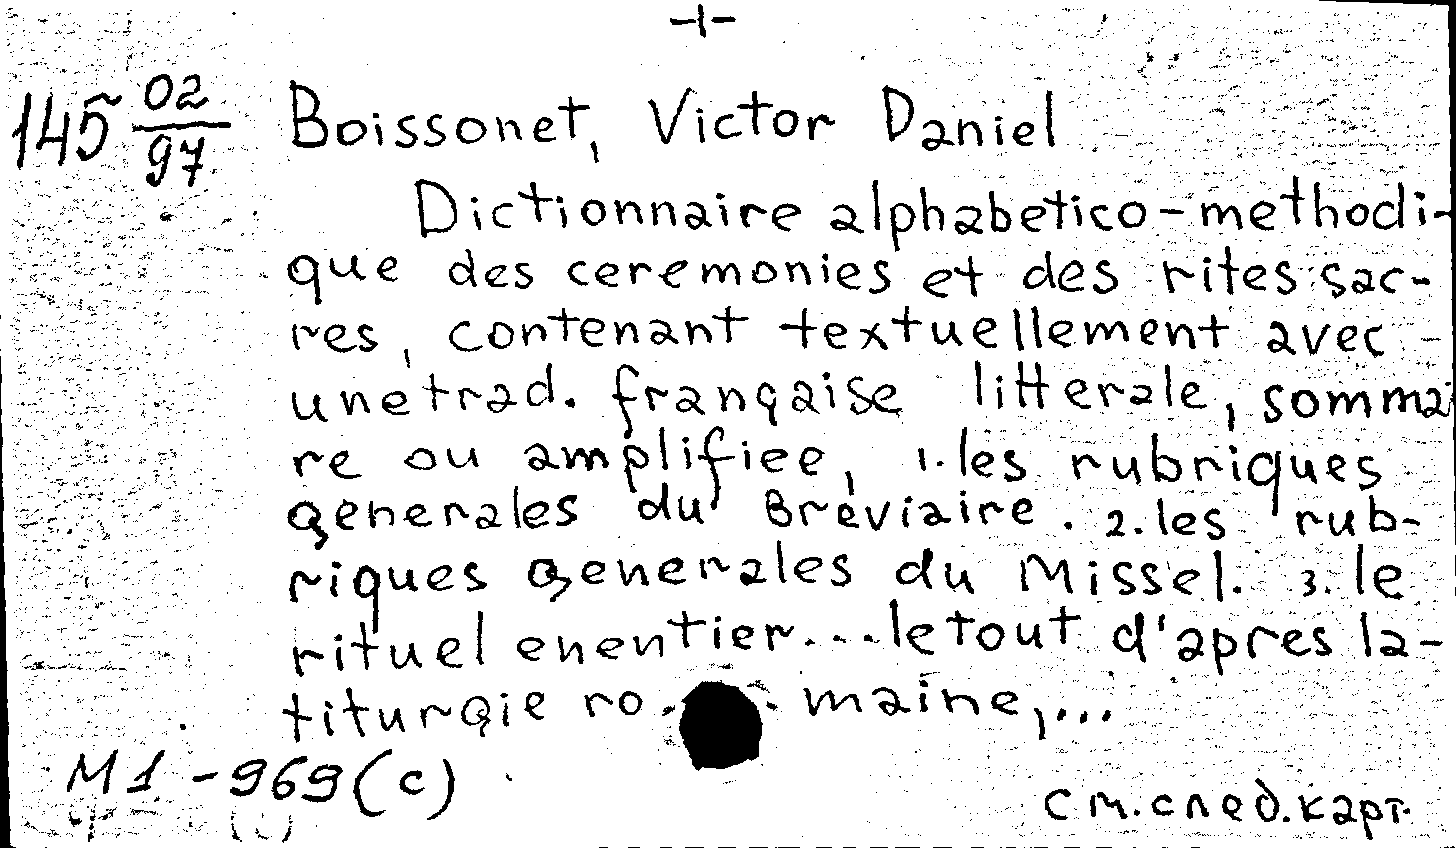 -1-
145 02/97 Boissonet, Victor Daniel
Dictionnaire alphabetico-methodi-
que des ceremonies et des rites sac-
res, contenant textuellement avec
une trad. française litterale, sommai
re ou amplifiee, 1. les rubriques
generales du Breviaire. 2. les rub-
riques generales du Missel. 3. le
rituel enentier... le tout d'apres la-
titurgie ro maine,...
M1-969(c)
см. след. карт.